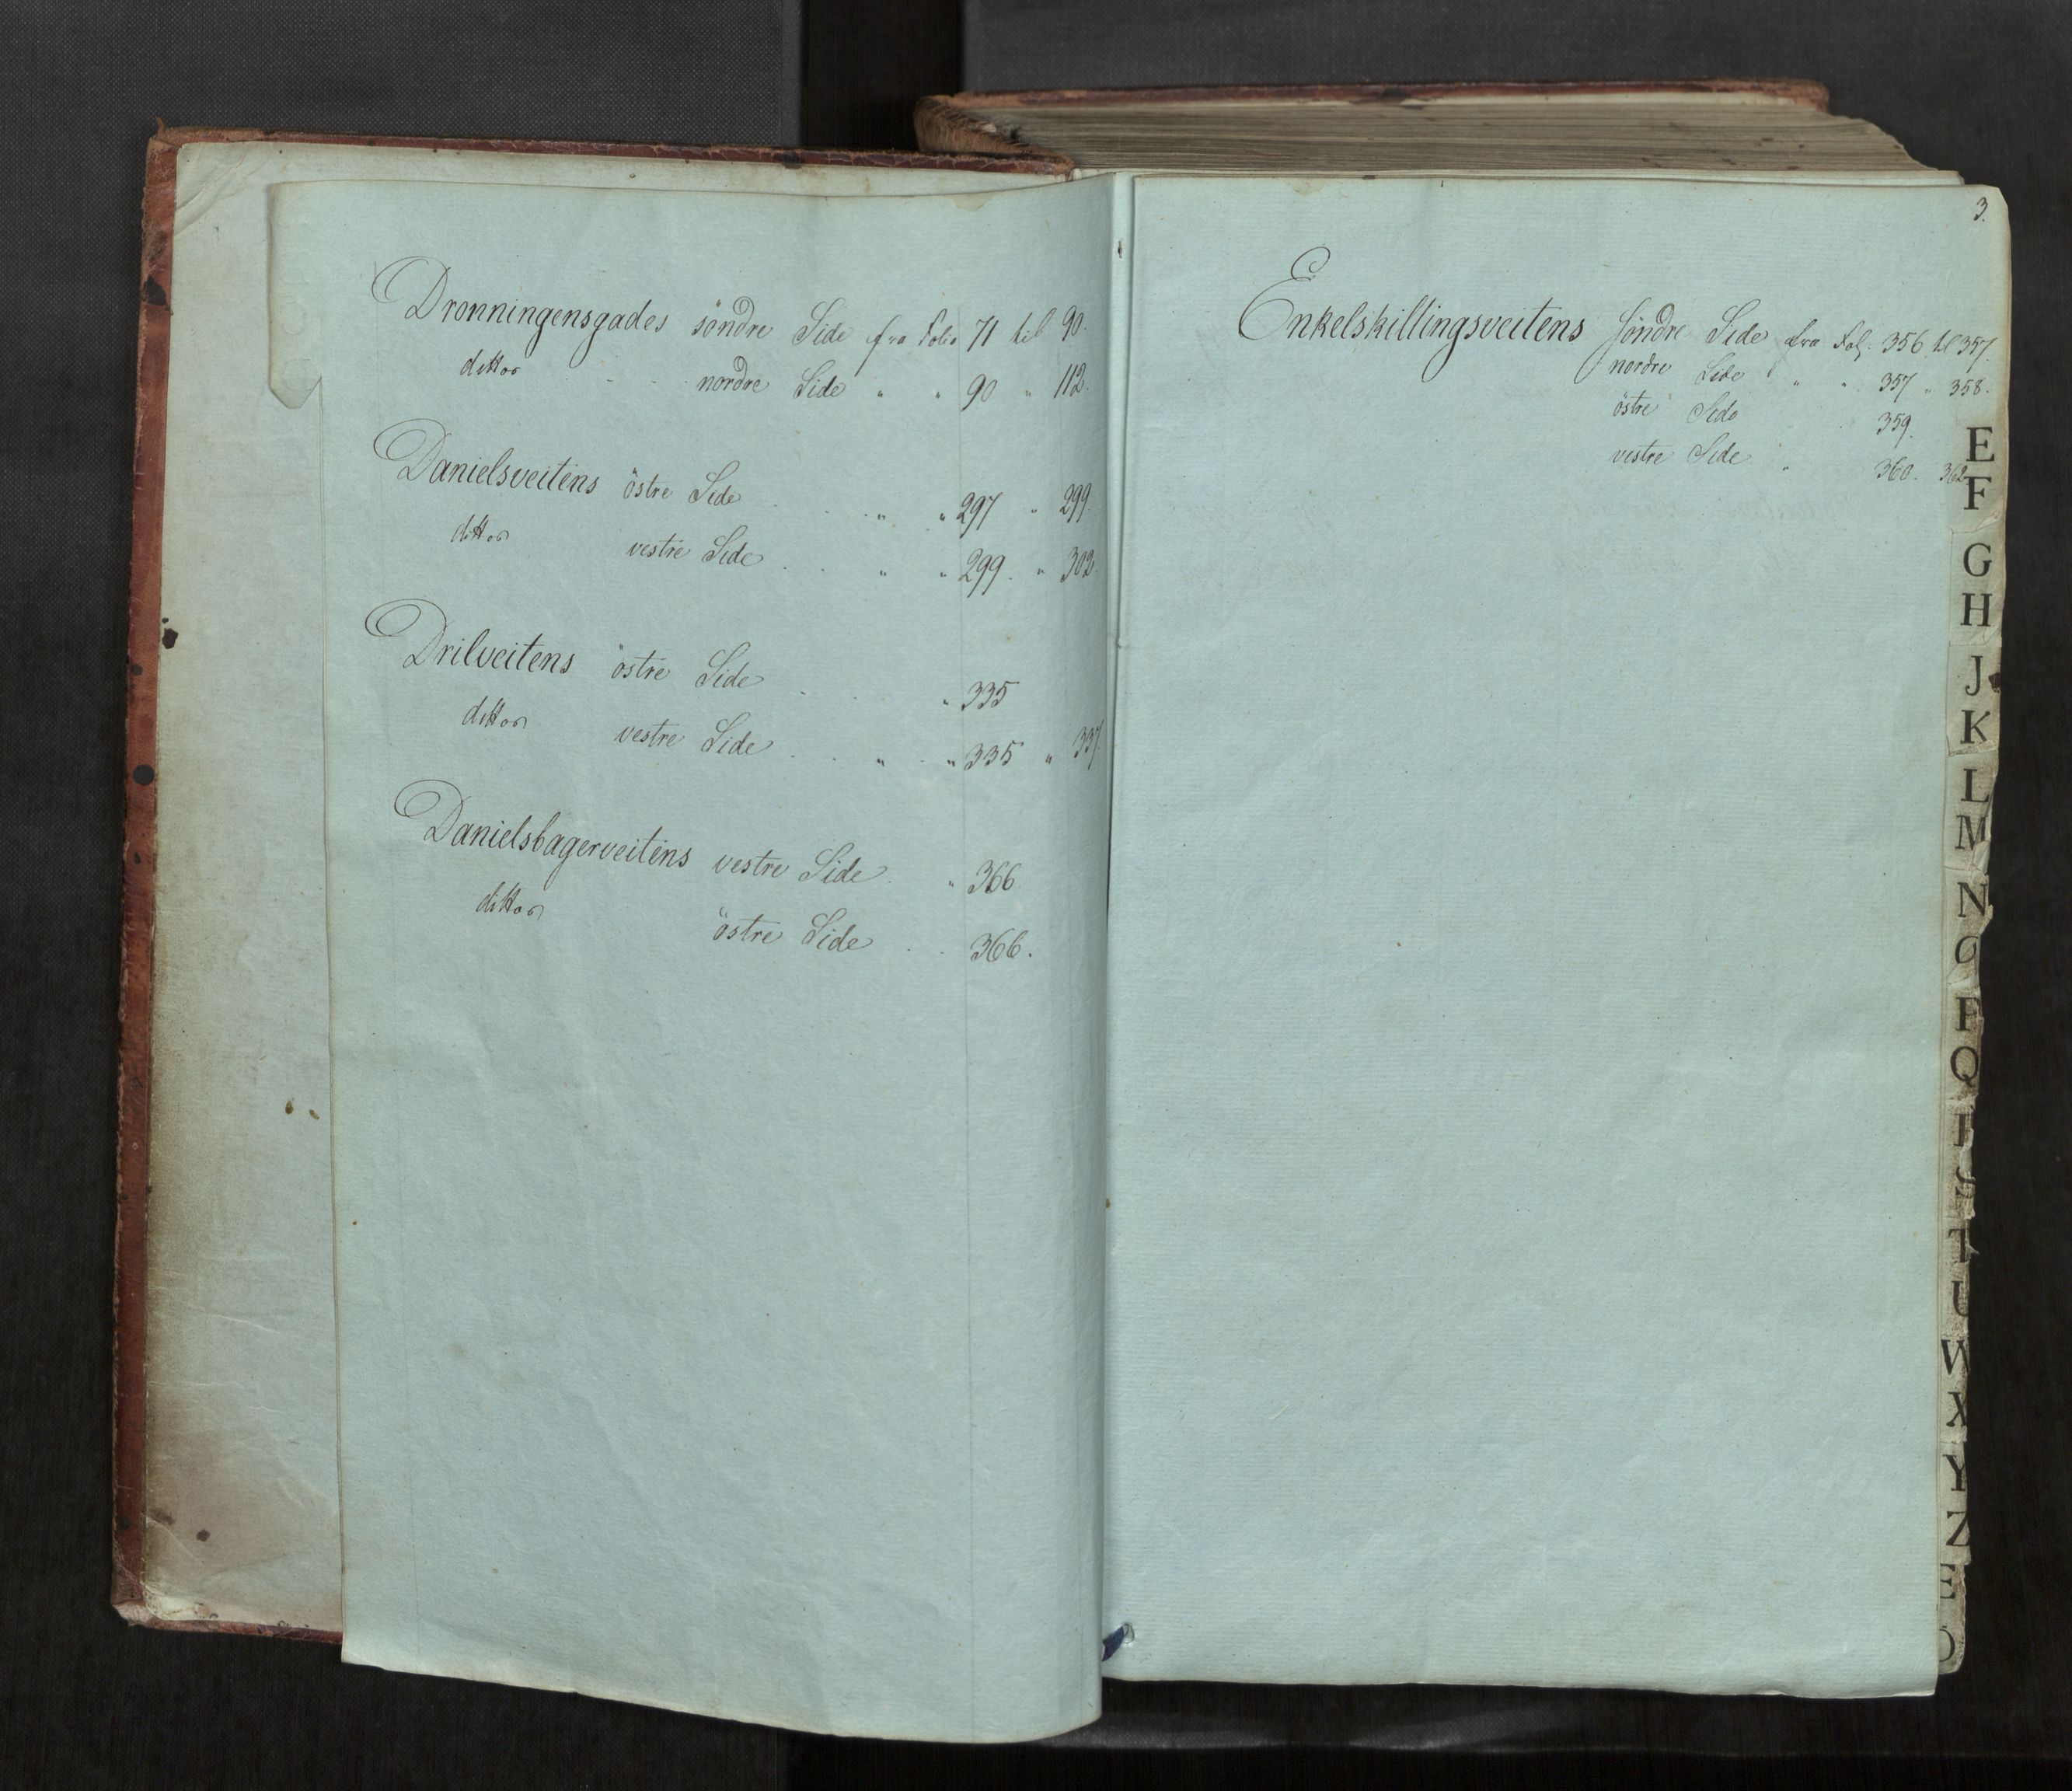 Dronningensgades söndre Side fra Folio 71 til 90.
dittos nordre Side " " 90 " 112.
Danielsveitens östre Side " " 297 " 299.
dittos vestre Side " " 299. " 302.
Drilveitens östre Side " 335
dittos vestre Side " " 335 " 337.
Danielsbagerveitens vestre Side " 366
dittos östre Side 366.
3.
Enkelskillingsveitens Söndre Side fra Fol. 356 til 357.
nordre Side " " 357 " 358.
östre Side 359.
vestre Side " 360. 362
E
F
G
H
J
K
L
M
N
O
P
Q
R
S
T
U
W
X
Y
Z